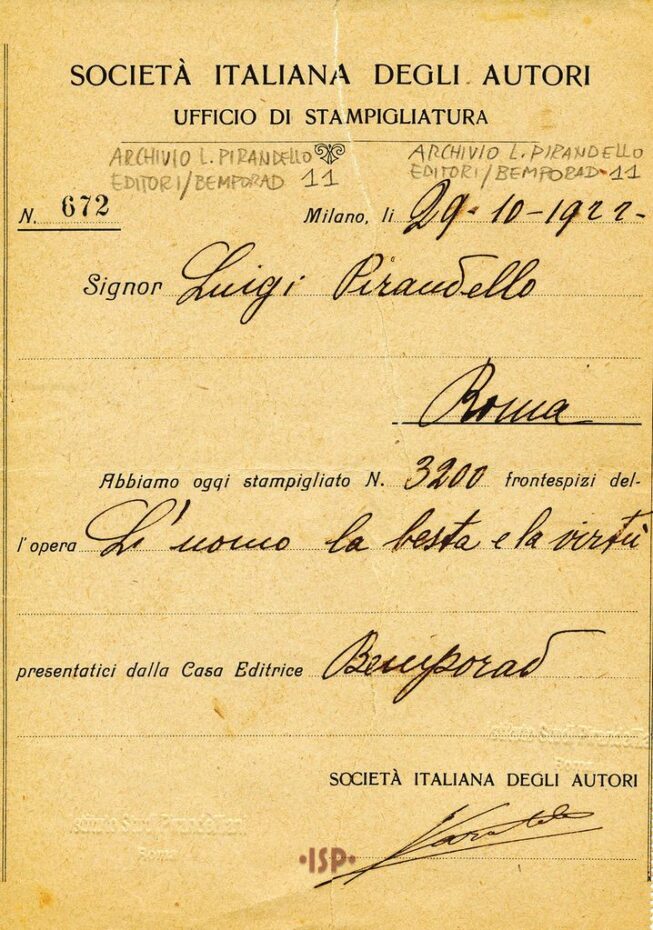 SOCIETÀ ITALIANA DEGLI AUTORI
UFFICIO DI STAMPIGLIATURA
ARCHIVIO L. PIRANDELLO
EDITORI/BEMPORAD 11
ARCHIVIO L. PIRANDELLO
EDITORI/BEMPORAD 11
N. 672
Milano, li 29-10-1922-
Signor Luigi Pirandello
Roma
Abbiamo oggi stampigliato N. 3200 frontespizi del-
l'opera L'uomo la besta e la virtù
presentatici dalla Casa Editrice Bemporad
SOCIETÀ ITALIANA DEGLI AUTORI
·ISP·